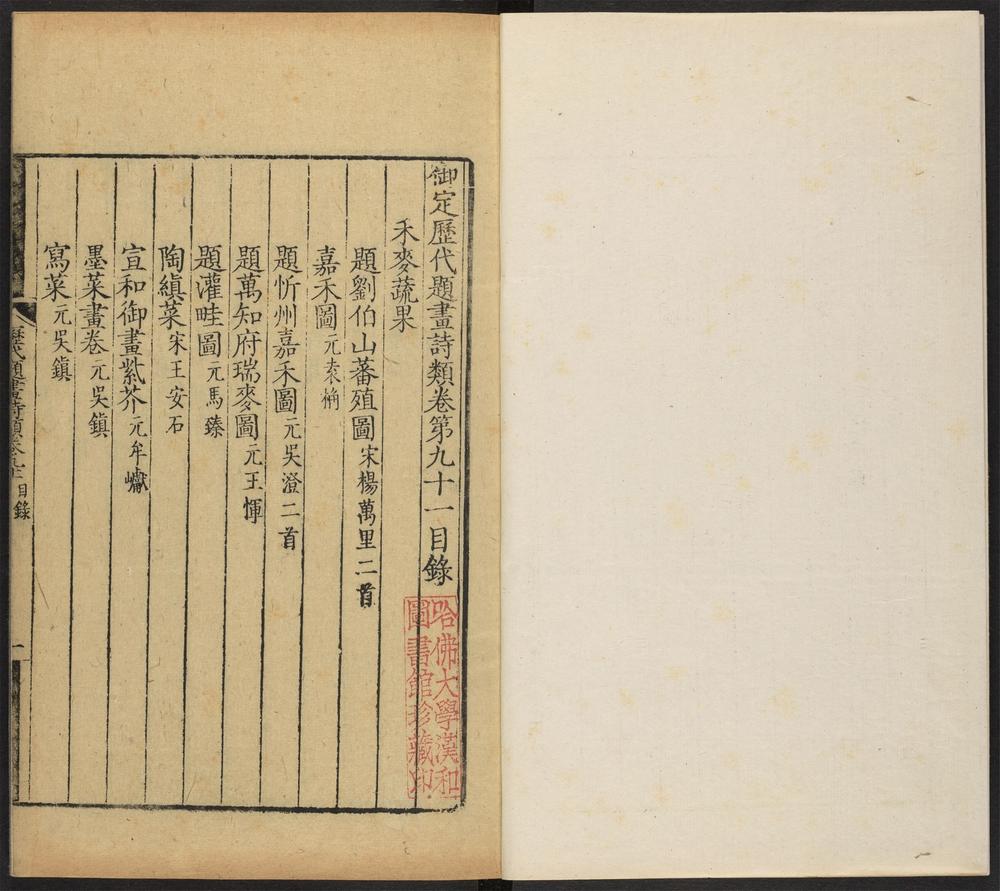 御定歷代題畫詩類卷第九十一目錄
禾麥蔬果
題劉伯山蕃殖圖宋楊萬里二首
嘉禾圖元袁桷
題忻州嘉禾圖元吳澄二首
題萬知府瑞麥圖元王惲
題灌畦圖元馬臻
陶縝菜宋王安石
宣和御畫紫芥元牟巘
墨菜畫卷元吳鎮
寫菜元吳鎮
歷代題畫詩類卷九十一目錄
一
哈佛大學漢和
圖書館珍藏印